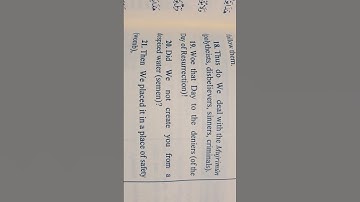 follow them.
18. Thus do We deal with the Mujrimûn
(polytheists, disbelievers, sinners, criminals).
19. Woe that Day to the deniers (of the
Day of Resurrection)!
20. Did We not create you from a
despised water (semen)?
21. Then We placed it in a place of safety
(womb),